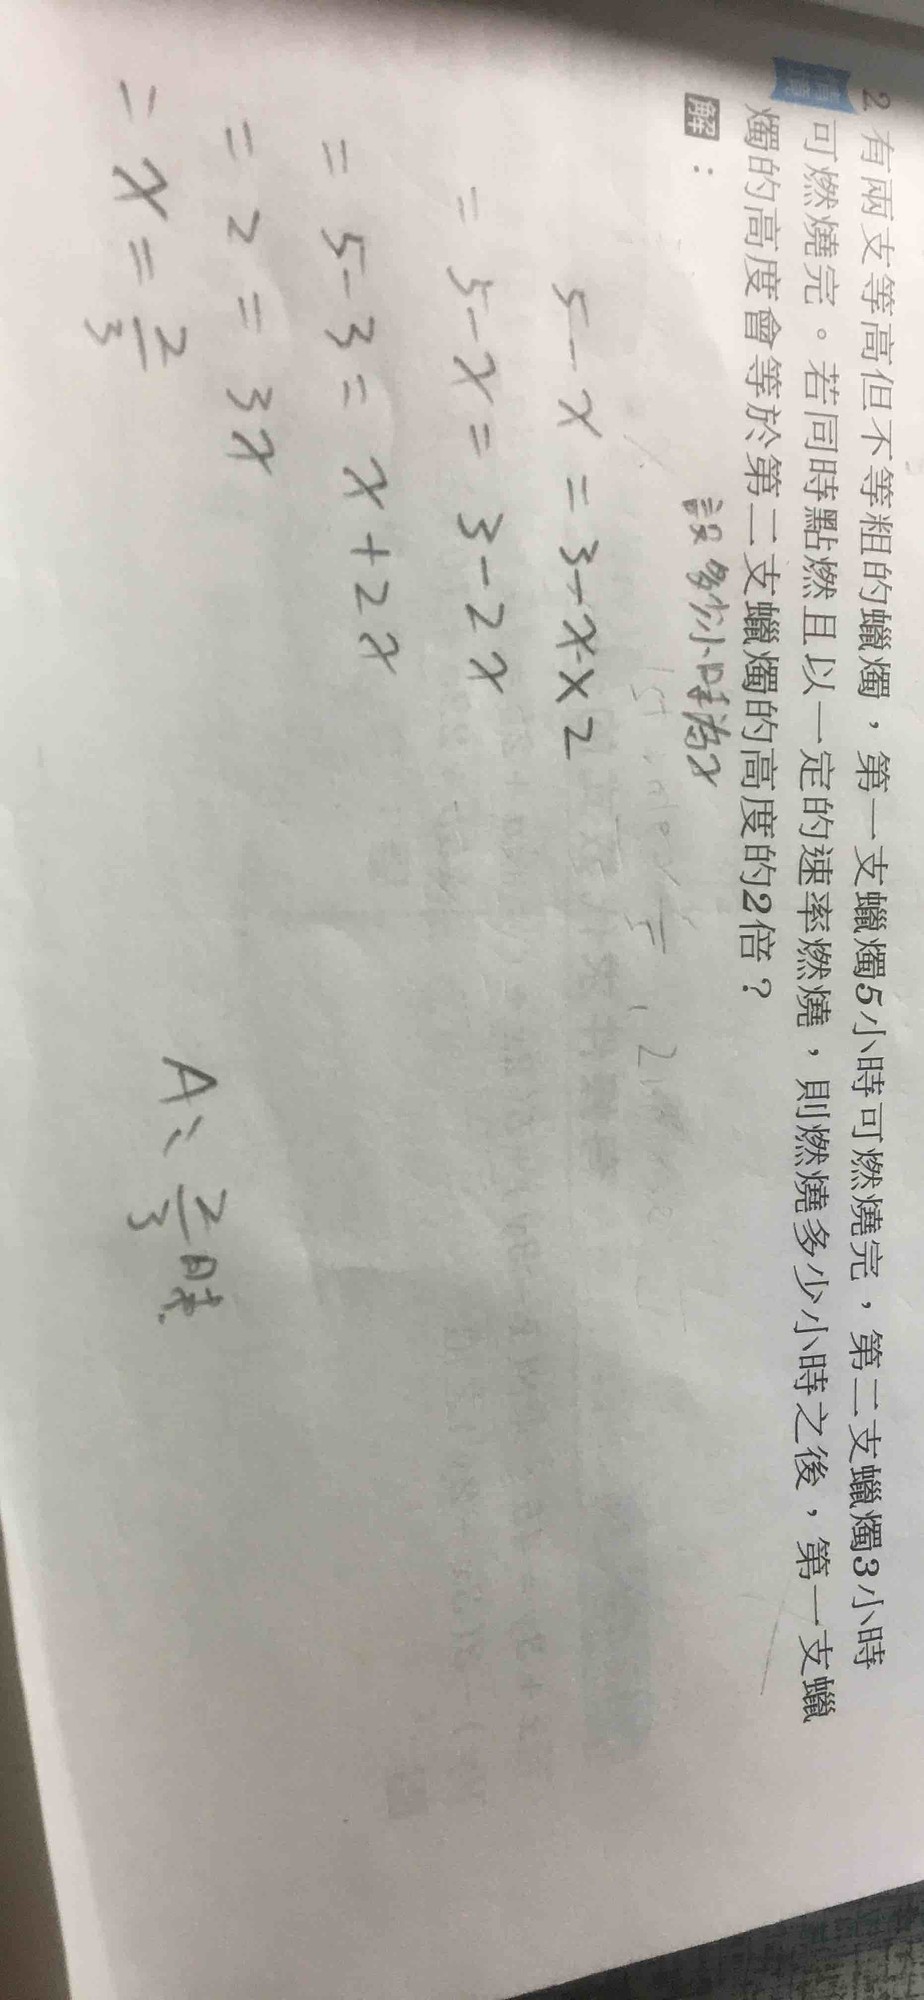 2 有兩支等高但不等粗的蠟燭，第一支蠟燭5小時可燃燒完，第二支蠟燭3小時
情境 可燃燒完。若同時點燃且以一定的速率燃燒，則燃燒多少小時之後，第一支蠟
燭的高度會等於第二支蠟燭的高度的2倍？
解：
設多少小時為x
5-x=3-x×2
=5-x=3-2x
=5-3=x+2x
=2=3x
=x=2/3
A：2/3時